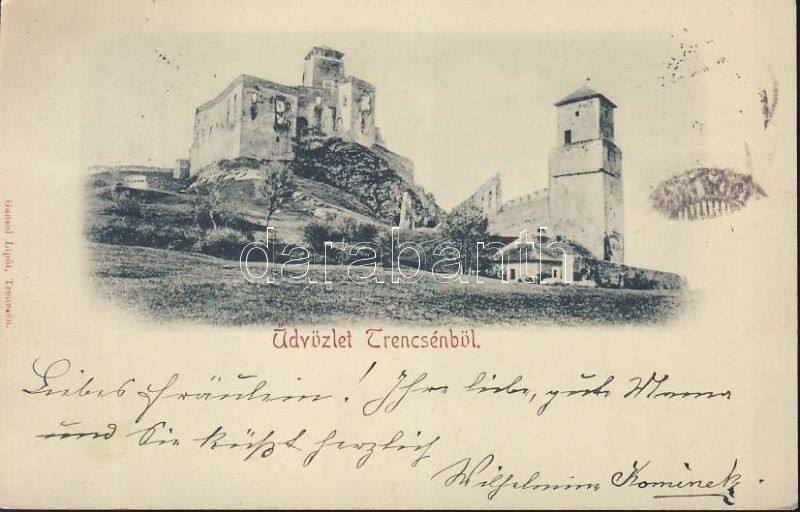 Gansel Lipót, Trencsén.
darabanth
Üdvözlet Trencsénböl.
Liebes Fräulein! Ihre liebe, gute Mama
und Sie küßt herzlich
Wilhelmine Kominek.